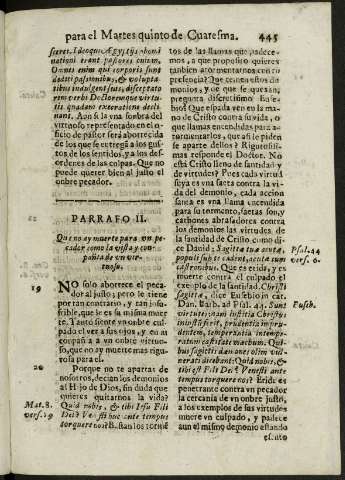 para el Martes quinto de Cuaresma.
445
seret. Ideoque Ægyptijs abominationi
erant pastores ouium.
Omnes enim qui corporis sunt
dediti passionibus, & voluptatibus
indulgentijs,
rem verbi Doctoremque virtutis
quadam execratione declinant.
Aun si la vna sombra del
virtuoso representado en el oficio
de pastor será aborrecida
de los que se entrega a los gustos
de los sentidos, ya los desordenes
de las culpas. Que no
puede querer bien al justo el
onbre pecador.
PARRAFO II.
Que no ay muerte para vn pecador
como la vista y conpañia
de vn virtuoso.
19
NO solo aborrece el pecador
al justo; pero le tiene
por tan contrario, y tan insufrible,
que le es la misma muerte.
Tanto siente vn onbre culpado
el ver a sus ojos, y en su
conpaña a vn onbre virtuoso,
que no ay muerte mas rigurosa
para el.
20
Porque no te apartas de
nosotros, decian los demonios
al Hijo de Dios, sin duda que
quieres quitarnos la vida?
Mat. 8.
vers. 29
Quid nobis, & tibi Iesu Fili
Dei? Venisti huc ante tempus
torquere nos? Bastan los
tos de las llamas que padecemos,
a que proposito quieres
tanbien atormentarnos con tu
presencia? Que tienen estos demonios,
y de que se quexan,
pregunta discretisimo Eusebio?
Que espada ven en la mano
de Cristo contra su vida, o
que llamas encendidas para atormentarlos,
que asi le piden
se aparte dellos? Rigurosisimas
responde el Doctor. No
está Cristo lleno de santidad y
de virtudes? Pues cada virtud
suya es vna saeta contra la vida
del demonio, cada accion
santa es vna llama encendida
para su tormento, saetas son, y
carbones abrasadores contra
los demonios las virtudes, de
la santidad de Cristo, como dice
David: Sagittæ tuæ acutæ,
Psal. 44
vers. 6.
populi sub te cadent, acutæ cum
carbonibus. Que es erida, y es
muerte contra el culpado el
exemplo de la santidad. Christi
sagittæ, dice Eusebio, in cat.
Euseb.
Dan. Barb. ad Psal. 44. Sunt
virtutes; nam iustitia Christus
iniustitiã percit, prudentia imprudentiam,
temperantia intemperantiam
castitate mæchum. Quibus
sagittis dæmones olim vulnerati
dicebant: Quid nobis, &
tibi est Fili Dei? Venisti ante
tempus torquere nos? Eride es
penetrante contra vn pecador
la cercania de vn onbre justo,
a los exemplos de sus virtudes
muere vn culpado, y padece
aun el mismo demonio estando